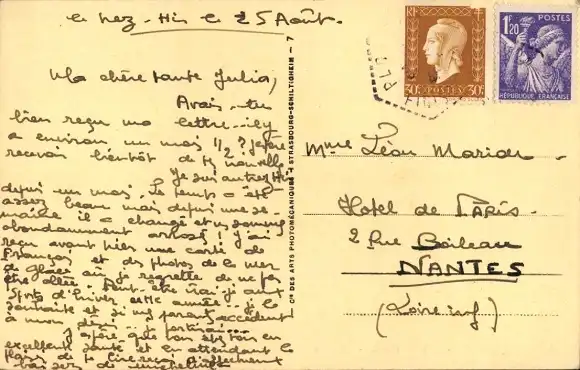 le 25 Août.
Ma chère tante Julia,
Avais-tu
bien reçu ma lettre il y
a environ un mois 1/2 ? J'espère
recevoir bientôt de tes nouvelles
Je suis au très
depuis un mois. Le temps a été
assez beau mais depuis une se-
maine il a changé et nous sommes
abondamment arrosés ! J'ai
reçu avant hier une carte de
François et des photos de la mer
de glace où je regrette de ne pas
être allée. Peut-être irai-je aux
Sports d'hiver cette année.. je le
souhaite et si mes parents accèdent
à mon désir
J'espère que tu es toujours en
excellente santé et en attendant le
plaisir de te lire reçois d'affectueux
baisers de
Cie DES ARTS PHOTOMÉCANIQUES STRASBOURG-SCHILTIGHEIM — 7
RF
30c POSTES 30c
1F20 POSTES
RÉPUBLIQUE FRANÇAISE
Mme Léon Marion
Hotel de Paris.
2 Rue Boileau
NANTES
(Loire inf)